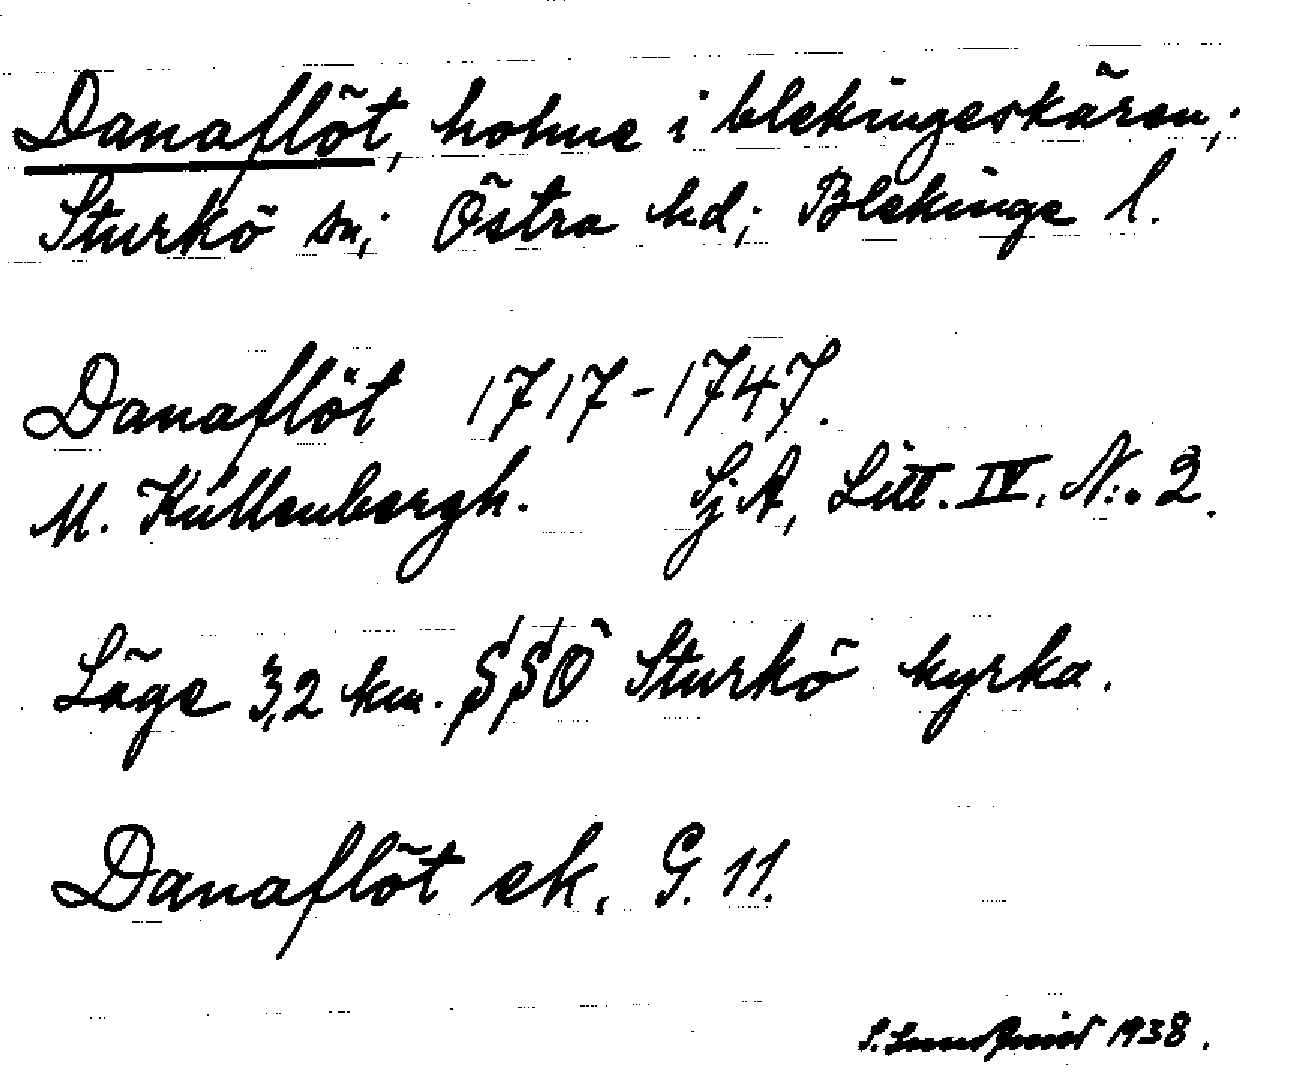 Danaflöt, holme i blekingeskären;
Sturkö sn; Östra hd; Blekinge l.
Danaflöt 1717-1747.
M. Kullenbergh. Sj A, Litt. IV. N:o 2.
Läge 3,2 km. SSÖ Sturkö kyrka.
Danaflöt ek. G. 11.
S. Lundqvist 1938.